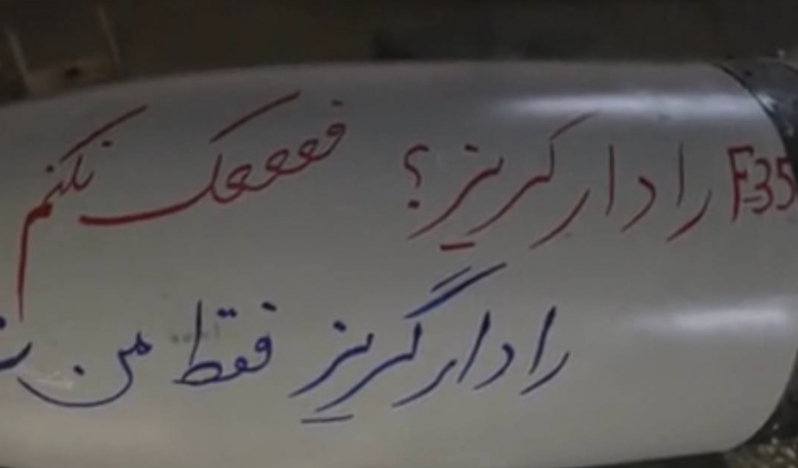 F-35 رادارگریز؟ فففففک نکنم
رادارگریز فقط من